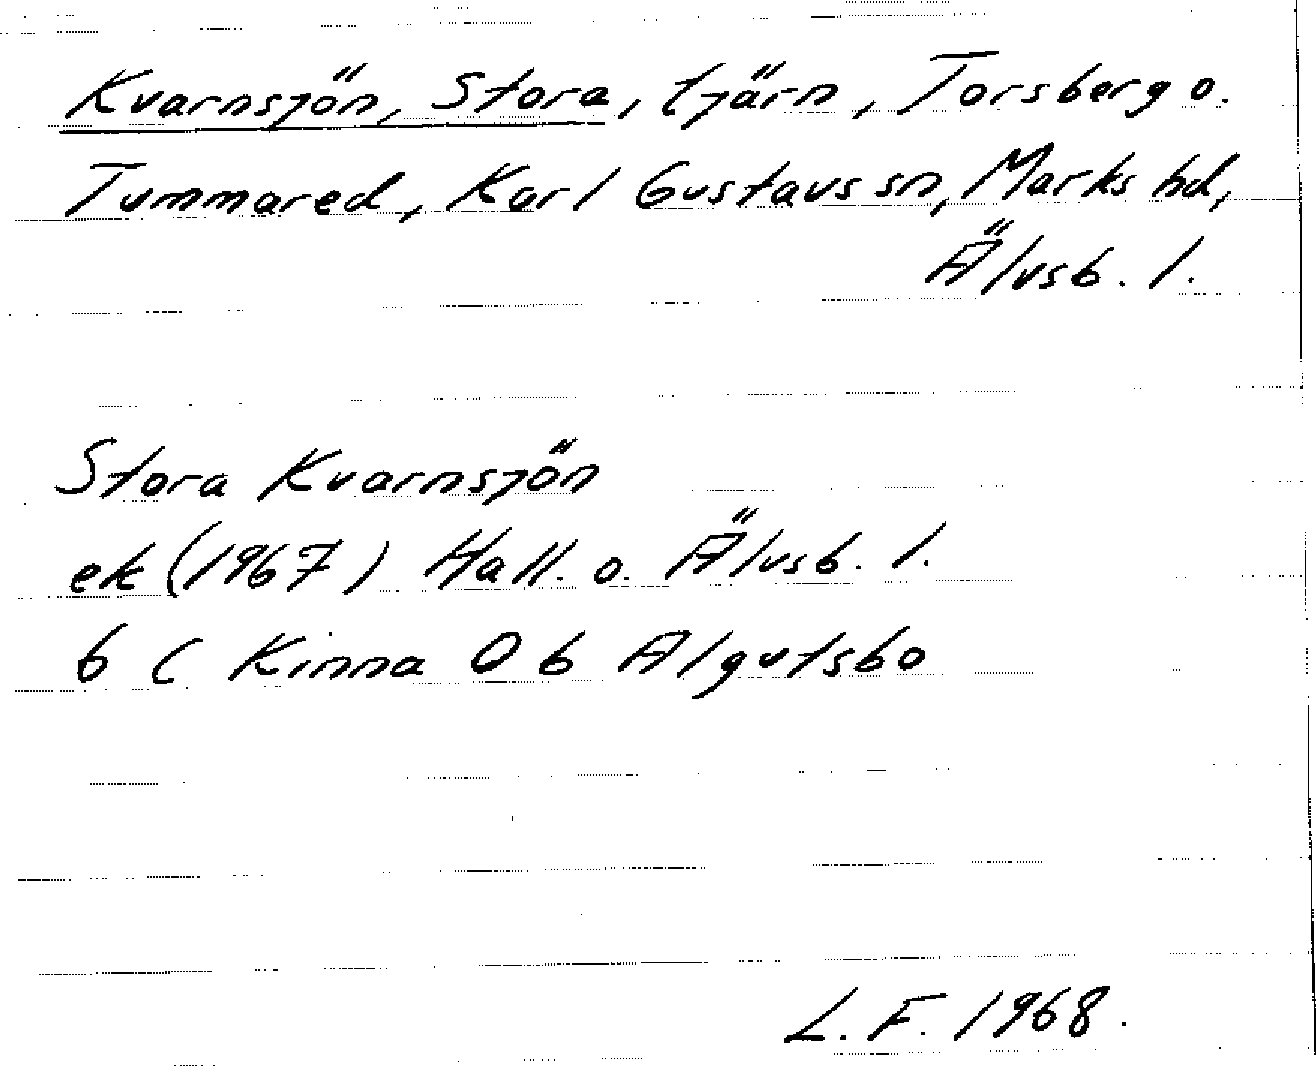 Kvarnsjön, Stora, tjärn, Torsberg o.
Tummared, Karl Gustavs sn, Marks hd,
Älvsb. l.
Stora Kvarnsjön
ek (1967) Hall. o. Älvsb. l.
6 C Kinna 0 6 Algutsbo
L. F. 1968.